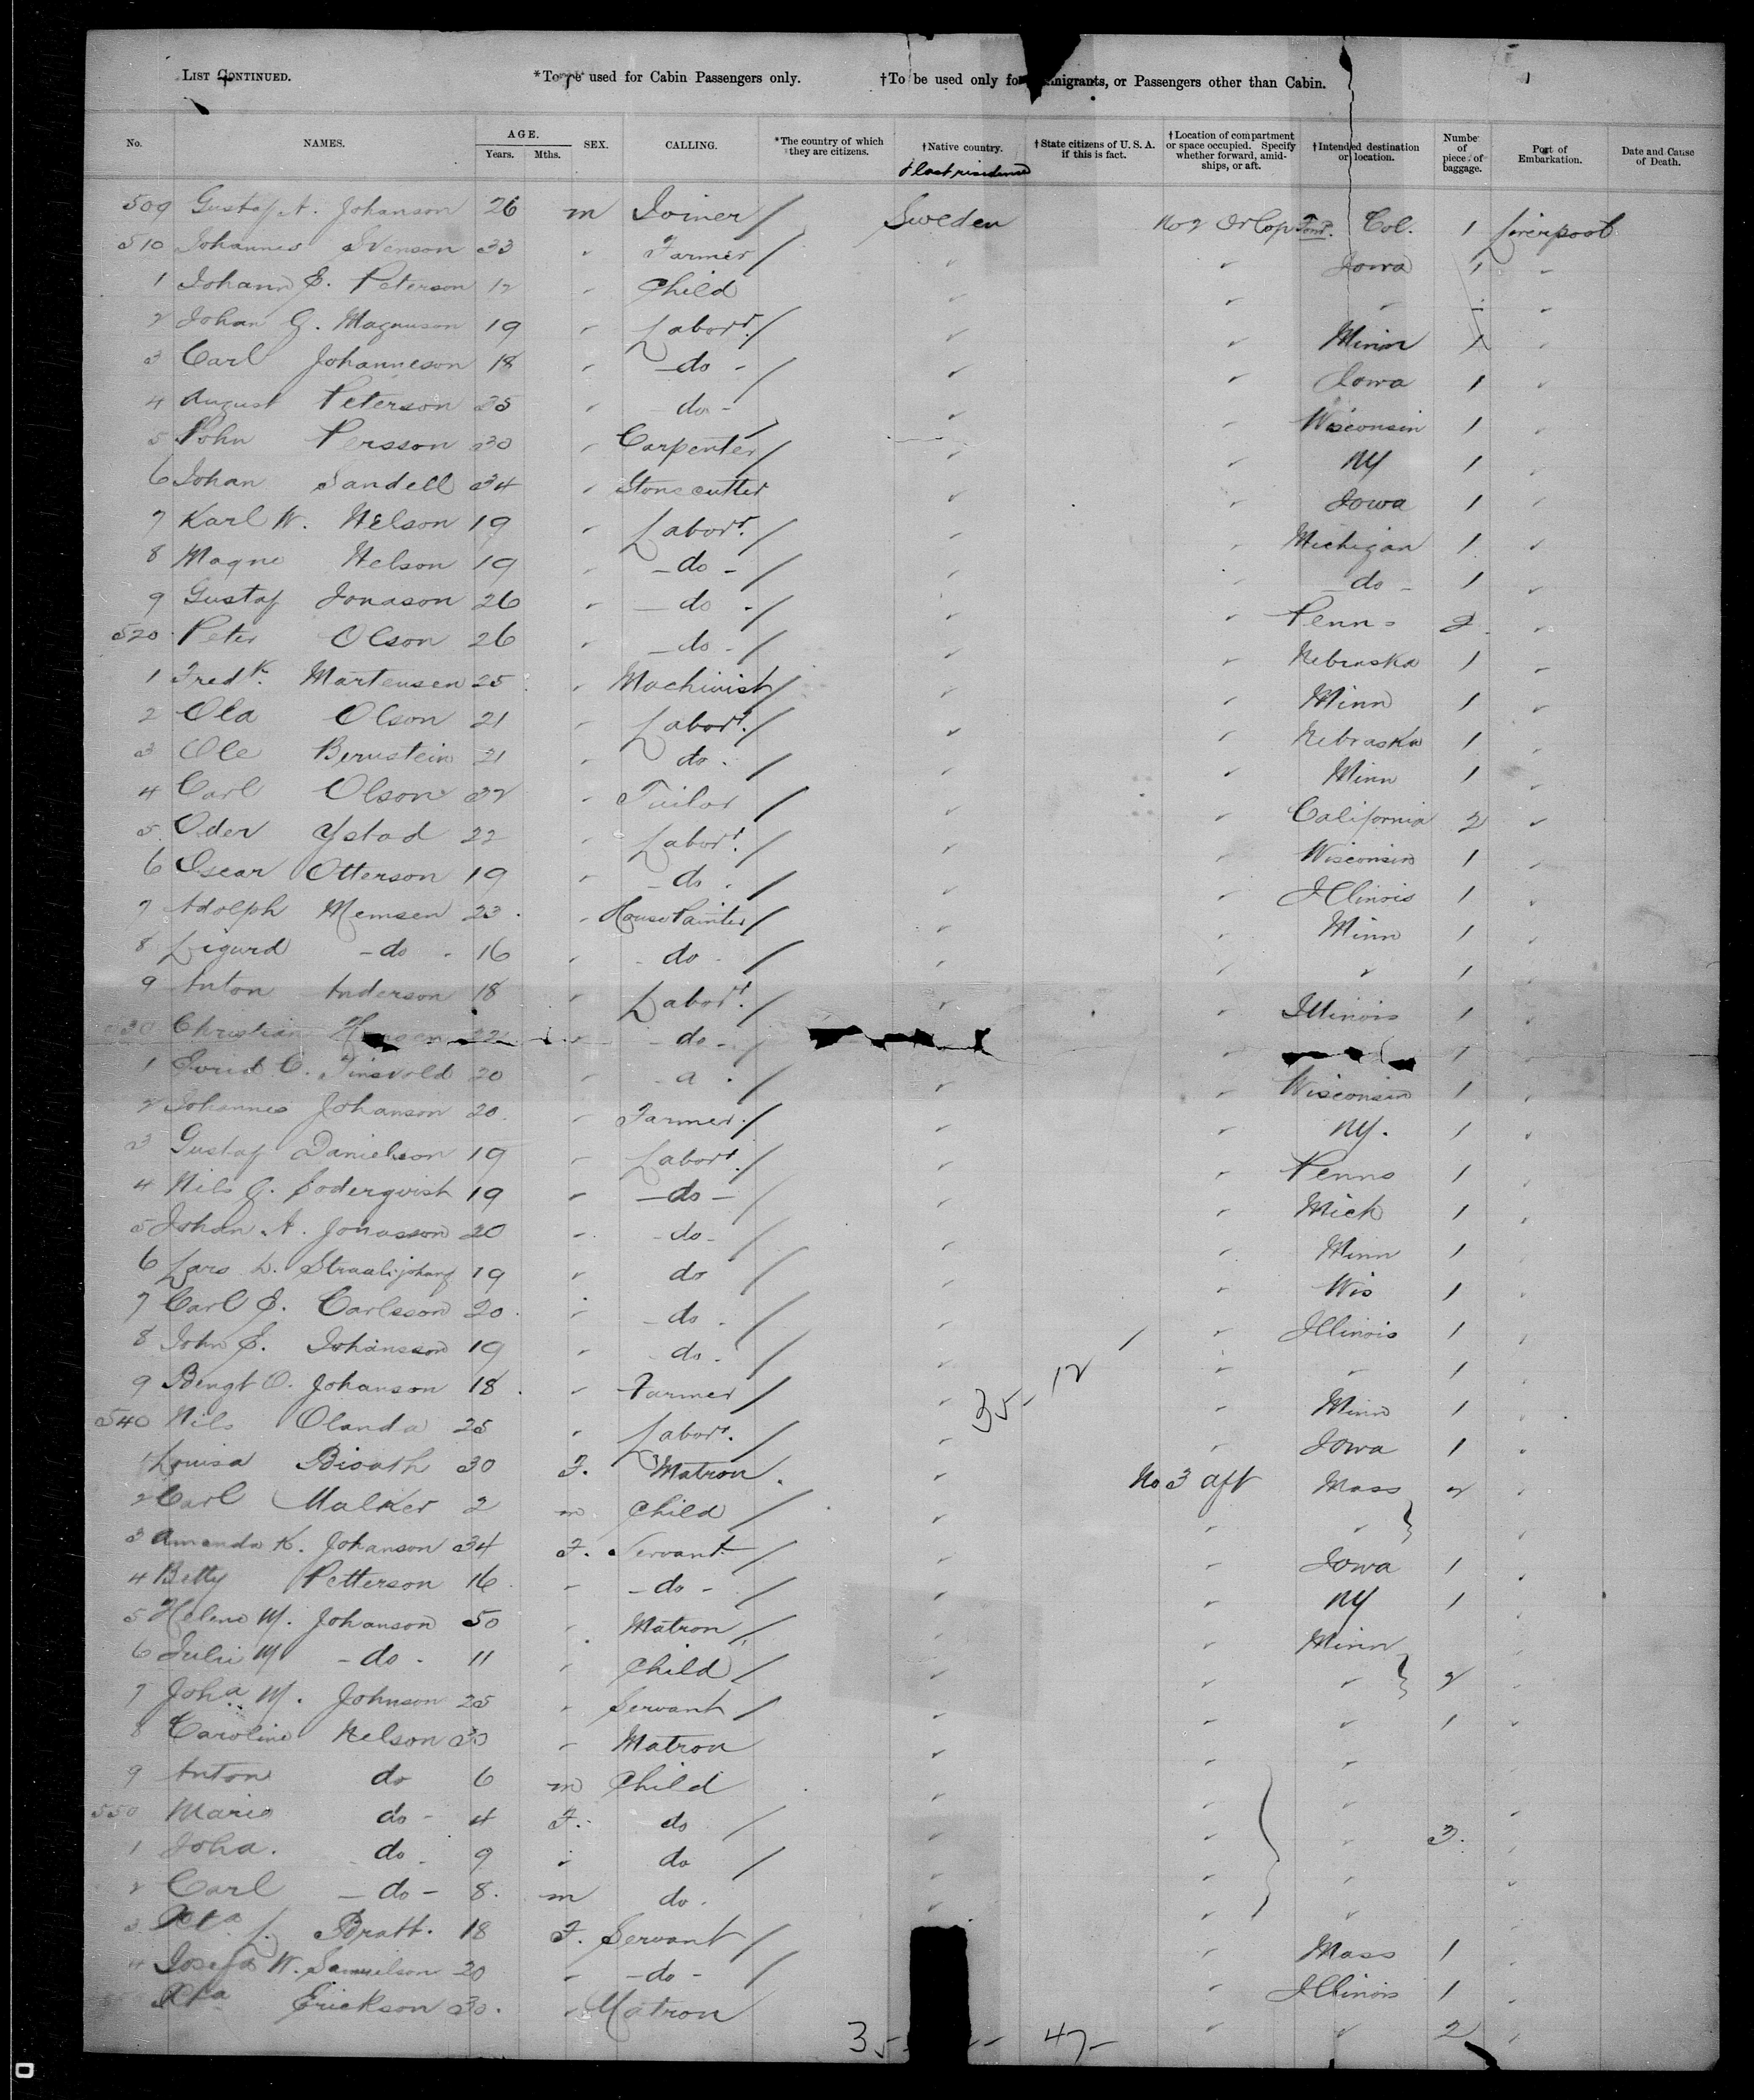 LIST CONTINUED. *To be used for Cabin Passengers only. †To be used only for Immigrants, or Passengers other than Cabin.
No. NAMES. AGE. Years. Mths. SEX. CALLING. *The country of which they are citizens. †Native country. †State citizens of U. S. A. if this is fact. †Location of compartment or space occupied. Specify whether forward, amidships, or aft. †Intended destination or location. Number of pieces of baggage. Port of Embarkation. Date and Cause of Death.
& last residence
509 Gustaf A. Johanson 26 m Joiner / Sweden No 2 Orlop Ford. Col. 1 Liverpool
510 Johannes Svenson 33 " Farmer / " " Iowa 1 "
1 Johann E. Peterson 12 " Child " " " "
2 Johan G. Magnuson 19 " Labort. / " " Minn 1 "
3 Carl Johanneson 18 " - do - / " " Iowa 1 "
4 August Peterson 35 " do - / " " Wisconsin 1 "
5 John Persson 30 " Carpenter / " " NY 1 "
6 Johan Sandell 34 " Stonecutter " " Iowa 1 "
7 Karl W. Nelson 19 " Labort. / " " Michigan 1 "
8 Magne Nelson 19 " - do - / " " - do - 1 "
9 Gustaf Jonason 26 " - do - / " " Penns 2 "
520 Peter Olson 26 " - do - / " " Nebraska 1 "
1 Fredk. Martensen 25 " Machinist / " " Minn 1 "
2 Ola Olson 21 " Labort. / " " Nebraska 1 "
3 Ole Bernstein 21 " do. / " " Minn 1 "
4 Carl Olson 32 " Tailor / " " California 2 "
5 Oder Ystad 22 " Labort. / " " Wisconsin 1 "
6 Oscar Otterson 19 " - do. / " " Illinois 1 "
7 Adolph Memsen 23 " House Painter / " " Minn 1 "
8 Sigurd - do - 16 " - do - / " " " 1 "
9 Anton Anderson 18 " Labort. / " " Illinois 1 "
530 Christian 22 " - do - / " 1 "
1 20 " / " " Wisconsin 1 "
2 Johannes Johanson 20 " Farmer / " " NY. 1 "
3 Gustaf Danielson 19 " Labort. / " " Penns 1 "
4 Nils J. Soderqvist 19 " - do - / " " Mich 1 "
5 Johan A. Jonasson 20 " - do - / " " Minn 1 "
6 Lars 19 " do / " Wis 1 "
7 Carl J. Carlsson 20 " - do - / " / " Illinois 1 "
8 John E. Johansson 19 " do - / " " " 1 "
9 Bengt O. Johanson 18 " Farmer / " 35- 12 " Minn 1
540 Nils Olanda 25 " Labort. / " " Iowa 1 "
1 Louisa 30 F. Matron. " No 3 aft Mass 2 "
2 Carl Malker 2 m Child / " " " } "
3 Amanda K. Johanson 34 F. Servant / " " Iowa 1 "
4 Betty Petterson 16 " - do - / " " NY 1 "
5 Helene M. Johanson 50 " Matron / " " Minn "
6 Julie M - do - 11 " Child / " " " } 2 "
7 Joha M. Johnson 25 " Servant / " " " 1 "
8 Caroline Nelson 30 " Matron " " "
9 Anton do 6 m Child " " " "
550 Marie do - 4 F. do / " " " 3. "
1 Joha. do - 9 " do / " " " "
2 Carl - do - 8. m do. " " "
3 Bratt. 18 F. Servant / " Mass 1 "
4 W. Samuelson 20 " - do - / " Illinois 1 "
Erickson 30. " Matron " " 2 "
35- 47-